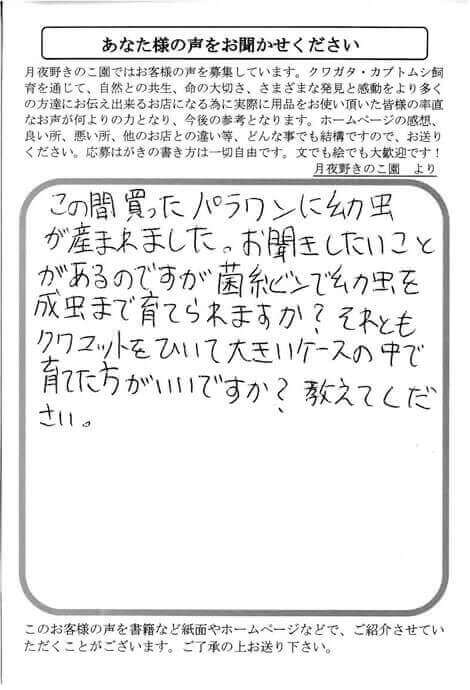 あなた様の声をお聞かせください
月夜野きのこ園ではお客様の声を募集しています。クワガタ・カブトムシ飼
育を通じて、自然との共生、命の大切さ、さまざまな発見と感動をより多く
の方達にお伝え出来るお店になる為に実際に用品をお使い頂いた皆様の率直
なお声が何よりの力となり、今後の参考となります。ホームページの感想、
良い所、悪い所、他のお店との違い等、どんな事でも結構ですので、お送り
ください。応募はがきの書き方は一切自由です。文でも絵でも大歓迎です！
月夜野きのこ園　より
この間買ったパラワンに幼虫
が産まれました。お聞きしたいこと
があるのですが菌糸ビンで幼虫を
成虫まで育てられますか？それとも
クワマットをひいて大きいケースの中で
育てた方がいいですか？教えてくだ
さい。
このお客様の声を書籍など紙面やホームページなどで、ご紹介させてい
ただくことがございます。ご了承の上お送り下さい。